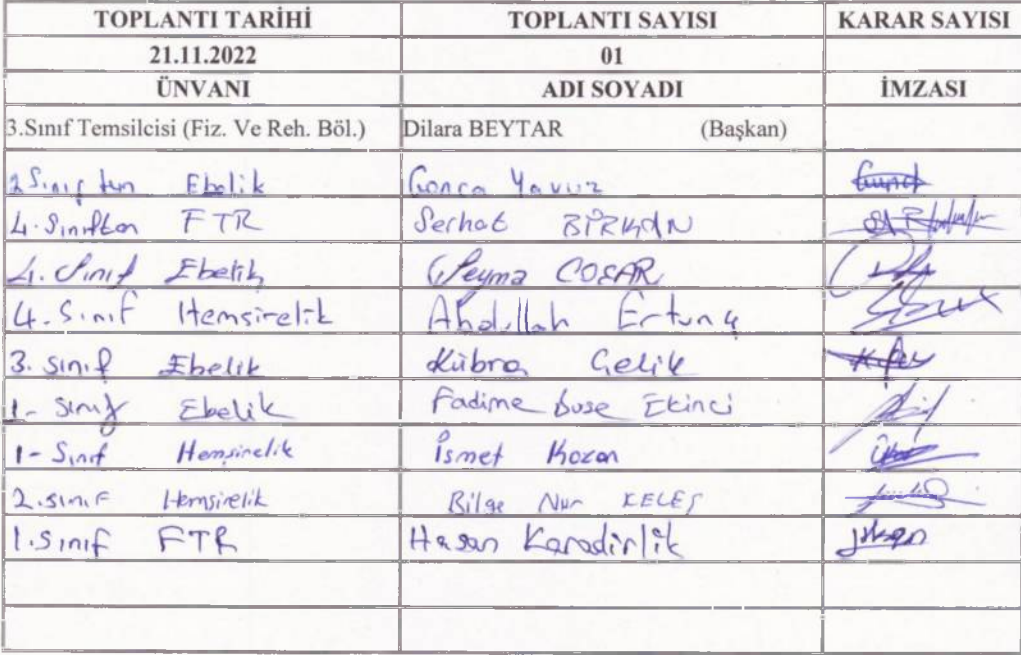 TOPLANTI TARİHİ TOPLANTI SAYISI KARAR SAYISI
21.11.2022 01
ÜNVANI ADI SOYADI İMZASI
3.Sınıf Temsilcisi (Fiz. Ve Reh. Böl.) Dilara BEYTAR (Başkan)
2 Ebelik Gonca Yavuz
4. Sınıftan FTR Serhat BİRKAN
4. Sınıf Ebelik Şeyma COŞAR
4. Sınıf Hemşirelik Abdullah Ertunç
3. Sınıf Ebelik Kübra Çelik
1- Sınıf Ebelik Fadime buse Ekinci
1- Sınıf Hemşirelik İsmet Kozan
2. sınıf Hemşirelik Bilge Nur KELEŞ
1. Sınıf FTR Hasan Karadirlik